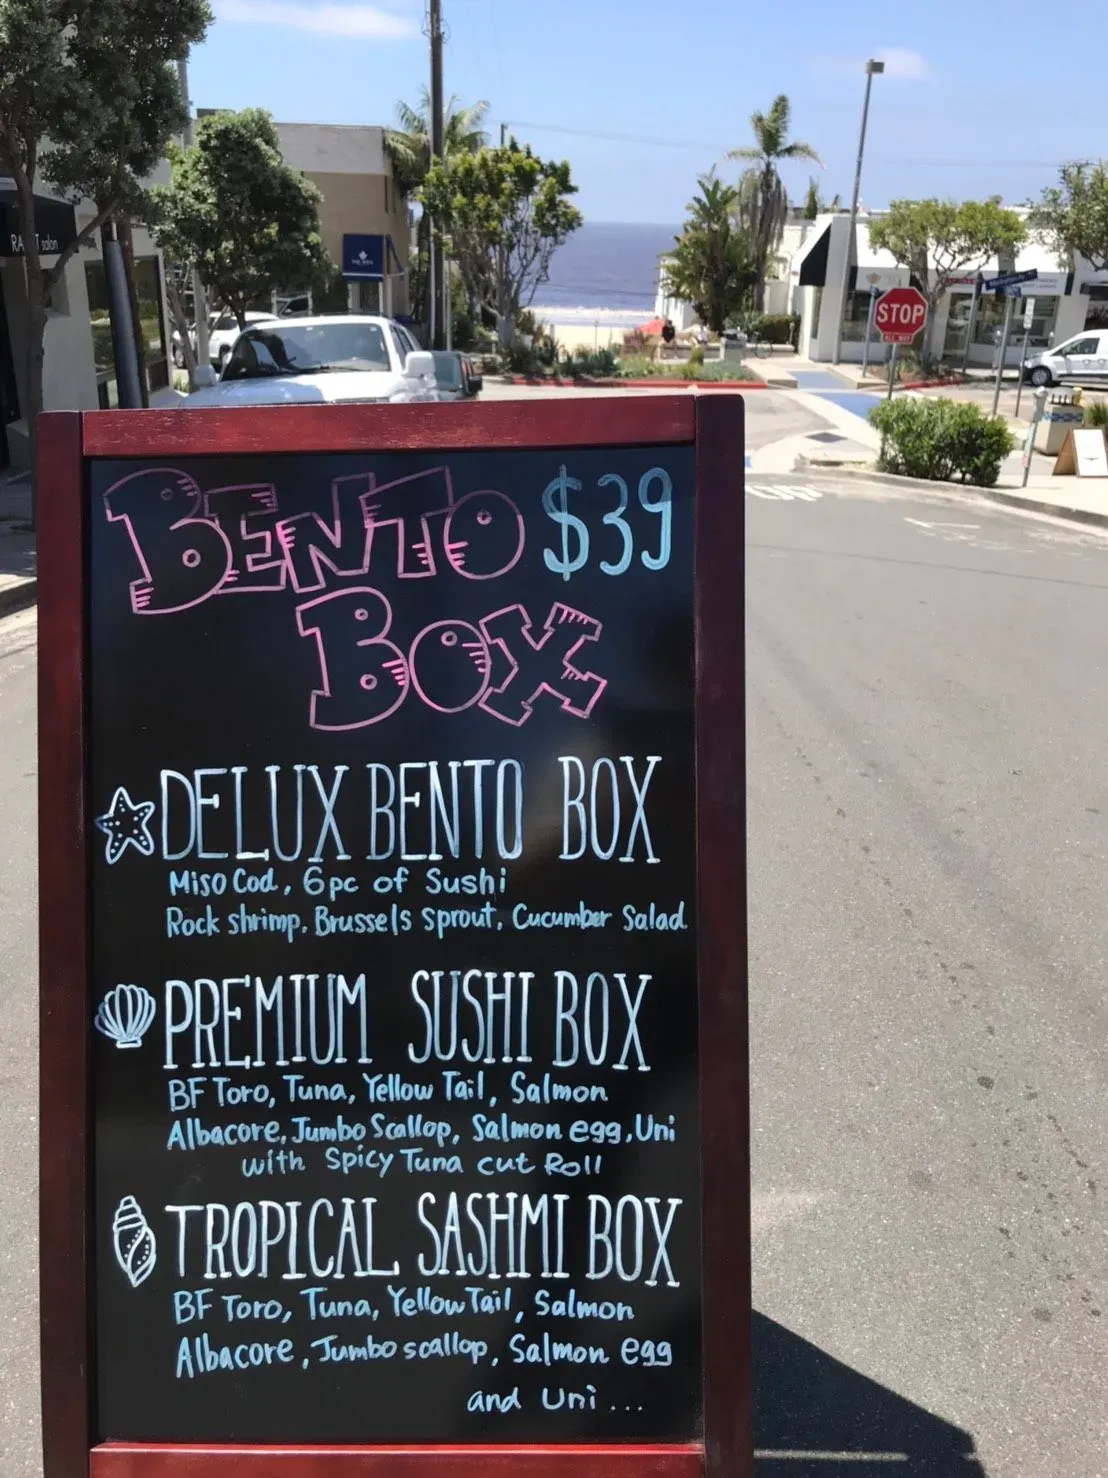 BENTO $39
BOX
DELUX BENTO BOX
Miso Cod, 6pc of Sushi
Rock shrimp, Brussels Sprout, Cucumber Salad
PREMIUM SUSHI BOX
BF Toro, Tuna, Yellow Tail, Salmon
Albacore, Jumbo Scallop, Salmon egg, Uni
with Spicy Tuna cut Roll
TROPICAL SASHMI BOX
BF Toro, Tuna, Yellow Tail, Salmon
Albacore, Jumbo scallop, Salmon egg
and Uni ...
salon
STOP
ALL WAY